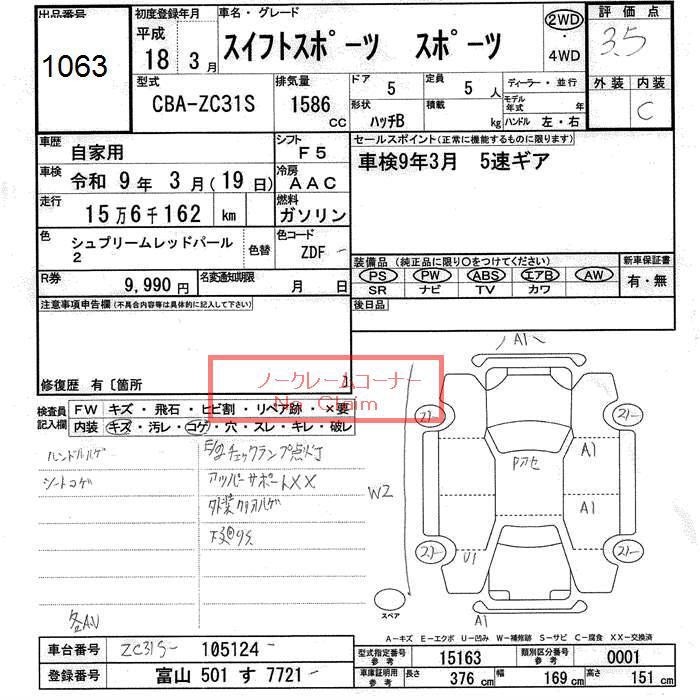 出品番号
1063
初度登録年月
平成
18 年 3 月
車名・グレード
スイフトスポーツ スポーツ
2WD
・
4WD
評価点
3.5
外装 内装
C
型式
CBA-ZC31S
排気量
1586
CC
ドア
5
定員
5 人
形状
ハッチB
積載
kg
ディーラー・並行
モデル
年式
年
ハンドル 左・右
車歴
自家用
シフト
F5
車検
令和 9 年 3 月 ( 19 日)
冷房
AAC
走行
15 万 6 千 162 km
燃料
ガソリン
色
シュプリームレッドパール
2
色替
色コード
ZDF
R券
9,990 円
名変通知期限
月 日
セールスポイント(正常に機能するものに限ります)
車検9年3月 5速ギア
装備品 (純正品に限り〇をつけてください)
PS PW ABS エアB AW
SR ナビ TV カワ
新車保証書
有・無
後日品
注意事項申告欄(不具合内容等は具体的に記入して下さい)
修復歴 有〔箇所 〕
ノークレームコーナー
No Claim
検査員
記入欄
FW キズ・飛石・ヒビ割・リペア跡・×要
内装 キズ・汚レ・コゲ・穴・スレ・キレ・破レ
ハンドルハゲ
シートコゲ
チェックランプ点灯
アッパーサポートXX
外装クリアハゲ
各AU
W2
A1
A1
A1
U1
A1
Pアセ
スペア
A-キズ E-エクボ U-凹み W-補修跡 S-サビ C-腐食 XX-交換済
車台番号
ZC31S- 105124
登録番号
富山 501 す 7721
型式指定番号
参考
15163
類別区分番号
参考
0001
車庫証明用
参考
長さ 376 cm 幅 169 cm 高さ 151 cm